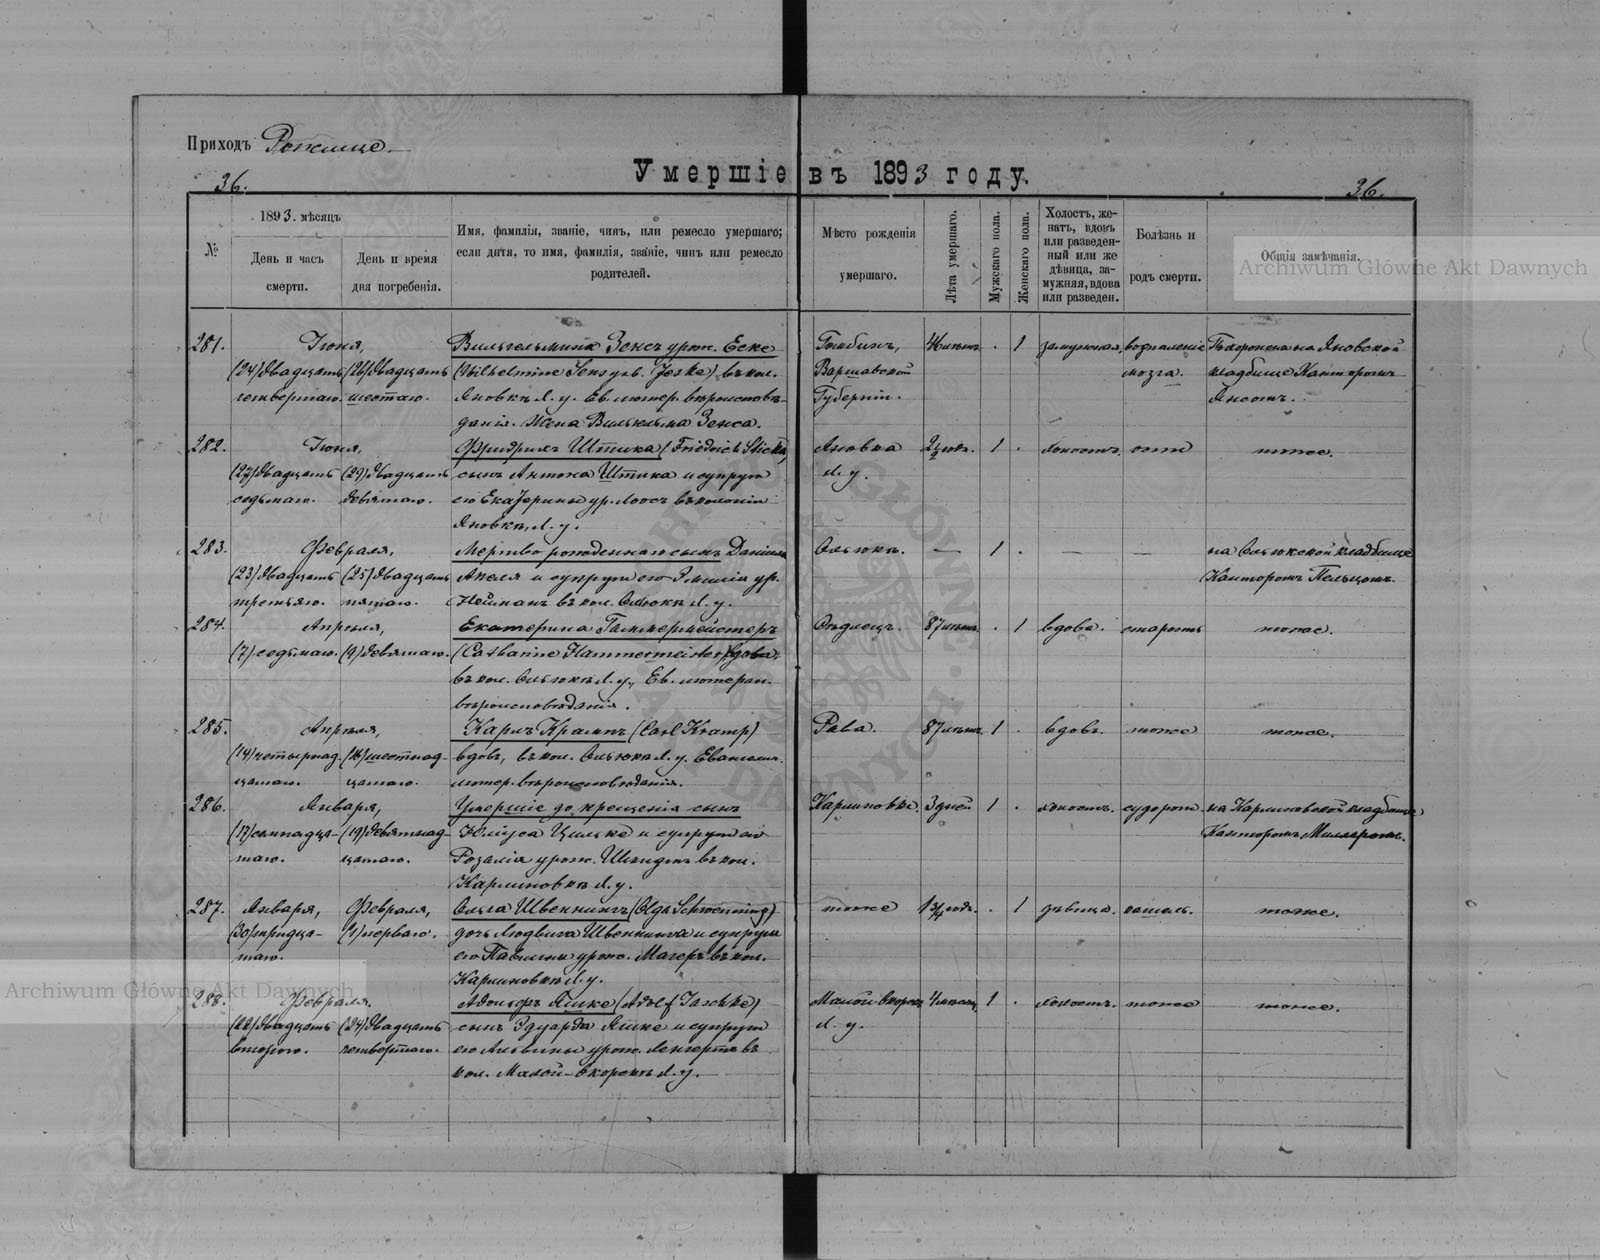 Приходъ Рожище.
Умершіе въ 1893 году.
36.
36.
№
1893. мѣсяцъ
День и часъ
смерти.
День и время
дня погребенія.
Имя, фамилія, званіе, чинъ, или ремесло умершаго;
если дитя, то имя, фамилія, званіе, чинъ или ремесло
родителей.
Мѣсто рожденія
умершаго.
Лѣта умершаго.
Мужскаго пола.
Женскаго пола.
Холостъ, же-
натъ, вдовъ
или разведен-
ный или же
дѣвица, за-
мужняя, вдова
или разведен.
Болѣзнь и
родъ смерти.
Общія замѣчанія.
Archiwum Główne Akt Dawnych
281. Іюня, Вильгельмина Зенсъ урож. Еске Гомбинъ, 46 лѣтъ . 1 замужняя, воспаленіе Похоронена на Яновской
(24) двадцать (26) двадцать (Wilhelmine Sens geb. Jeske) въ кол. Варшавской мозга. кладбище Канторомъ
четвертаго. шестаго. Яновкѣ Л. у. Ев. лютер. вѣроисповѣ- Губерніи.
данія. Жена Вильгельма Зенса.
282. Іюня, Фридрихъ Штика (Friedrich Sticka) Яновка 2½ годъ. 1 . холостъ. оспа тоже.
(27) двадцать (29) двадцать сынъ Антона Штика и супруги Л. у.
седьмаго. девятаго. его Екатерины ур. Лоосъ въ колоніи
Яновкѣ, Л. у.
283. Февраля, Мертво рожденный сынъ Даніила — 1 . — — на кладбище
(23) двадцать (25) двадцать Апеля и супруги его Эмиліи ур. Канторомъ Пельцомъ.
третьяго. пятаго. Нейманъ въ кол. Л. у.
284. Апрѣля, Екатерина Гаммермейстеръ Сѣдлецъ. 87 лѣтъ. . 1 вдова. старость тоже.
(7) седьмаго. (9) девятаго. (Catharine Hammermeister) вдова.
въ кол. Л. у., Ев. лютеран.
вѣроисповѣданія.
285. Апрѣля, Карлъ Крампъ (Carl Kramp) Рава. 87 лѣтъ. 1 . вдовъ. тоже тоже.
(14) четырнад- (16) шестнад- вдовъ, въ кол. Л. у. Евангел.
цатаго. цатаго. лютер. вѣроисповѣданія.
286. Января, Умершіе до крещенія сынъ Карлиновкѣ. 3 дней 1 . холостъ. судорог. на Карлиновской кладбище
(17) семнадца- (19) девятнад- Юліуса Цильке и супруги его Канторомъ Миллеромъ.
таго. цатаго. Розаліи урож. Шмидтъ въ кол.
Карлиновкѣ Л. у.
287. Января, Февраля, Ольга Швеннингъ (Olga Schwenning) тоже 1¾ годъ. . 1 дѣвица. кашель. тоже.
(30) тридца- (1) перваго. дочь Людвига Швеннинга и супруги
таго. его Павлины урож. Магеръ въ кол.
Карлиновкѣ Л. у.
Archiwum Główne Akt Dawnych
288. Февраля, Адольфъ Яшке (Adolf Jaschke) 4 мѣсяц. 1 . холостъ. тоже тоже.
(22) двадцать (24) двадцать сынъ Эдуарда Яшке и супруги Л. у.
втораго. четвертаго. его Альвины урож. Ленгертъ въ
кол. Малой- Л. у.